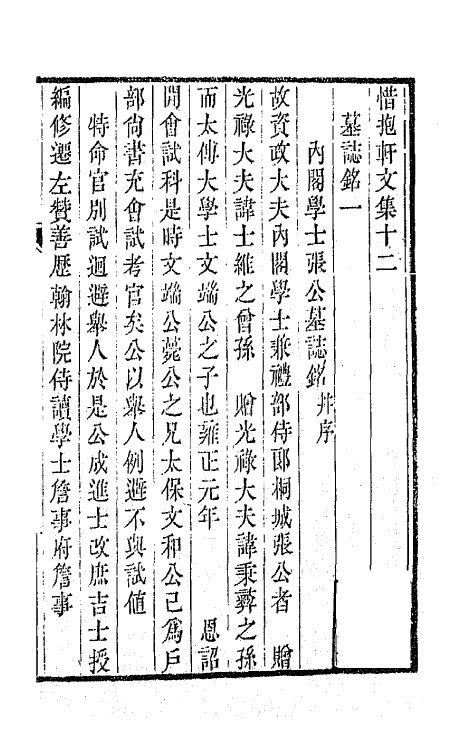 惜抱軒文集十二
墓誌銘一
內閣學士張公墓誌銘并序
故資政大夫內閣學士兼禮部侍郎桐城張公者　贈
光祿大夫諱士維之曾孫　贈光祿大夫諱秉彝之孫
而太傅大學士文端公之子也雍正元年　恩詔
開會試科是時文端公薨公之兄太保文和公已爲戶
部尚書充會試考官矣公以舉人例避不與試値
特命官別試迴避舉人於是公成進士改庶吉士授
編修遷左贊善歷翰林院侍讀學士詹事府詹事